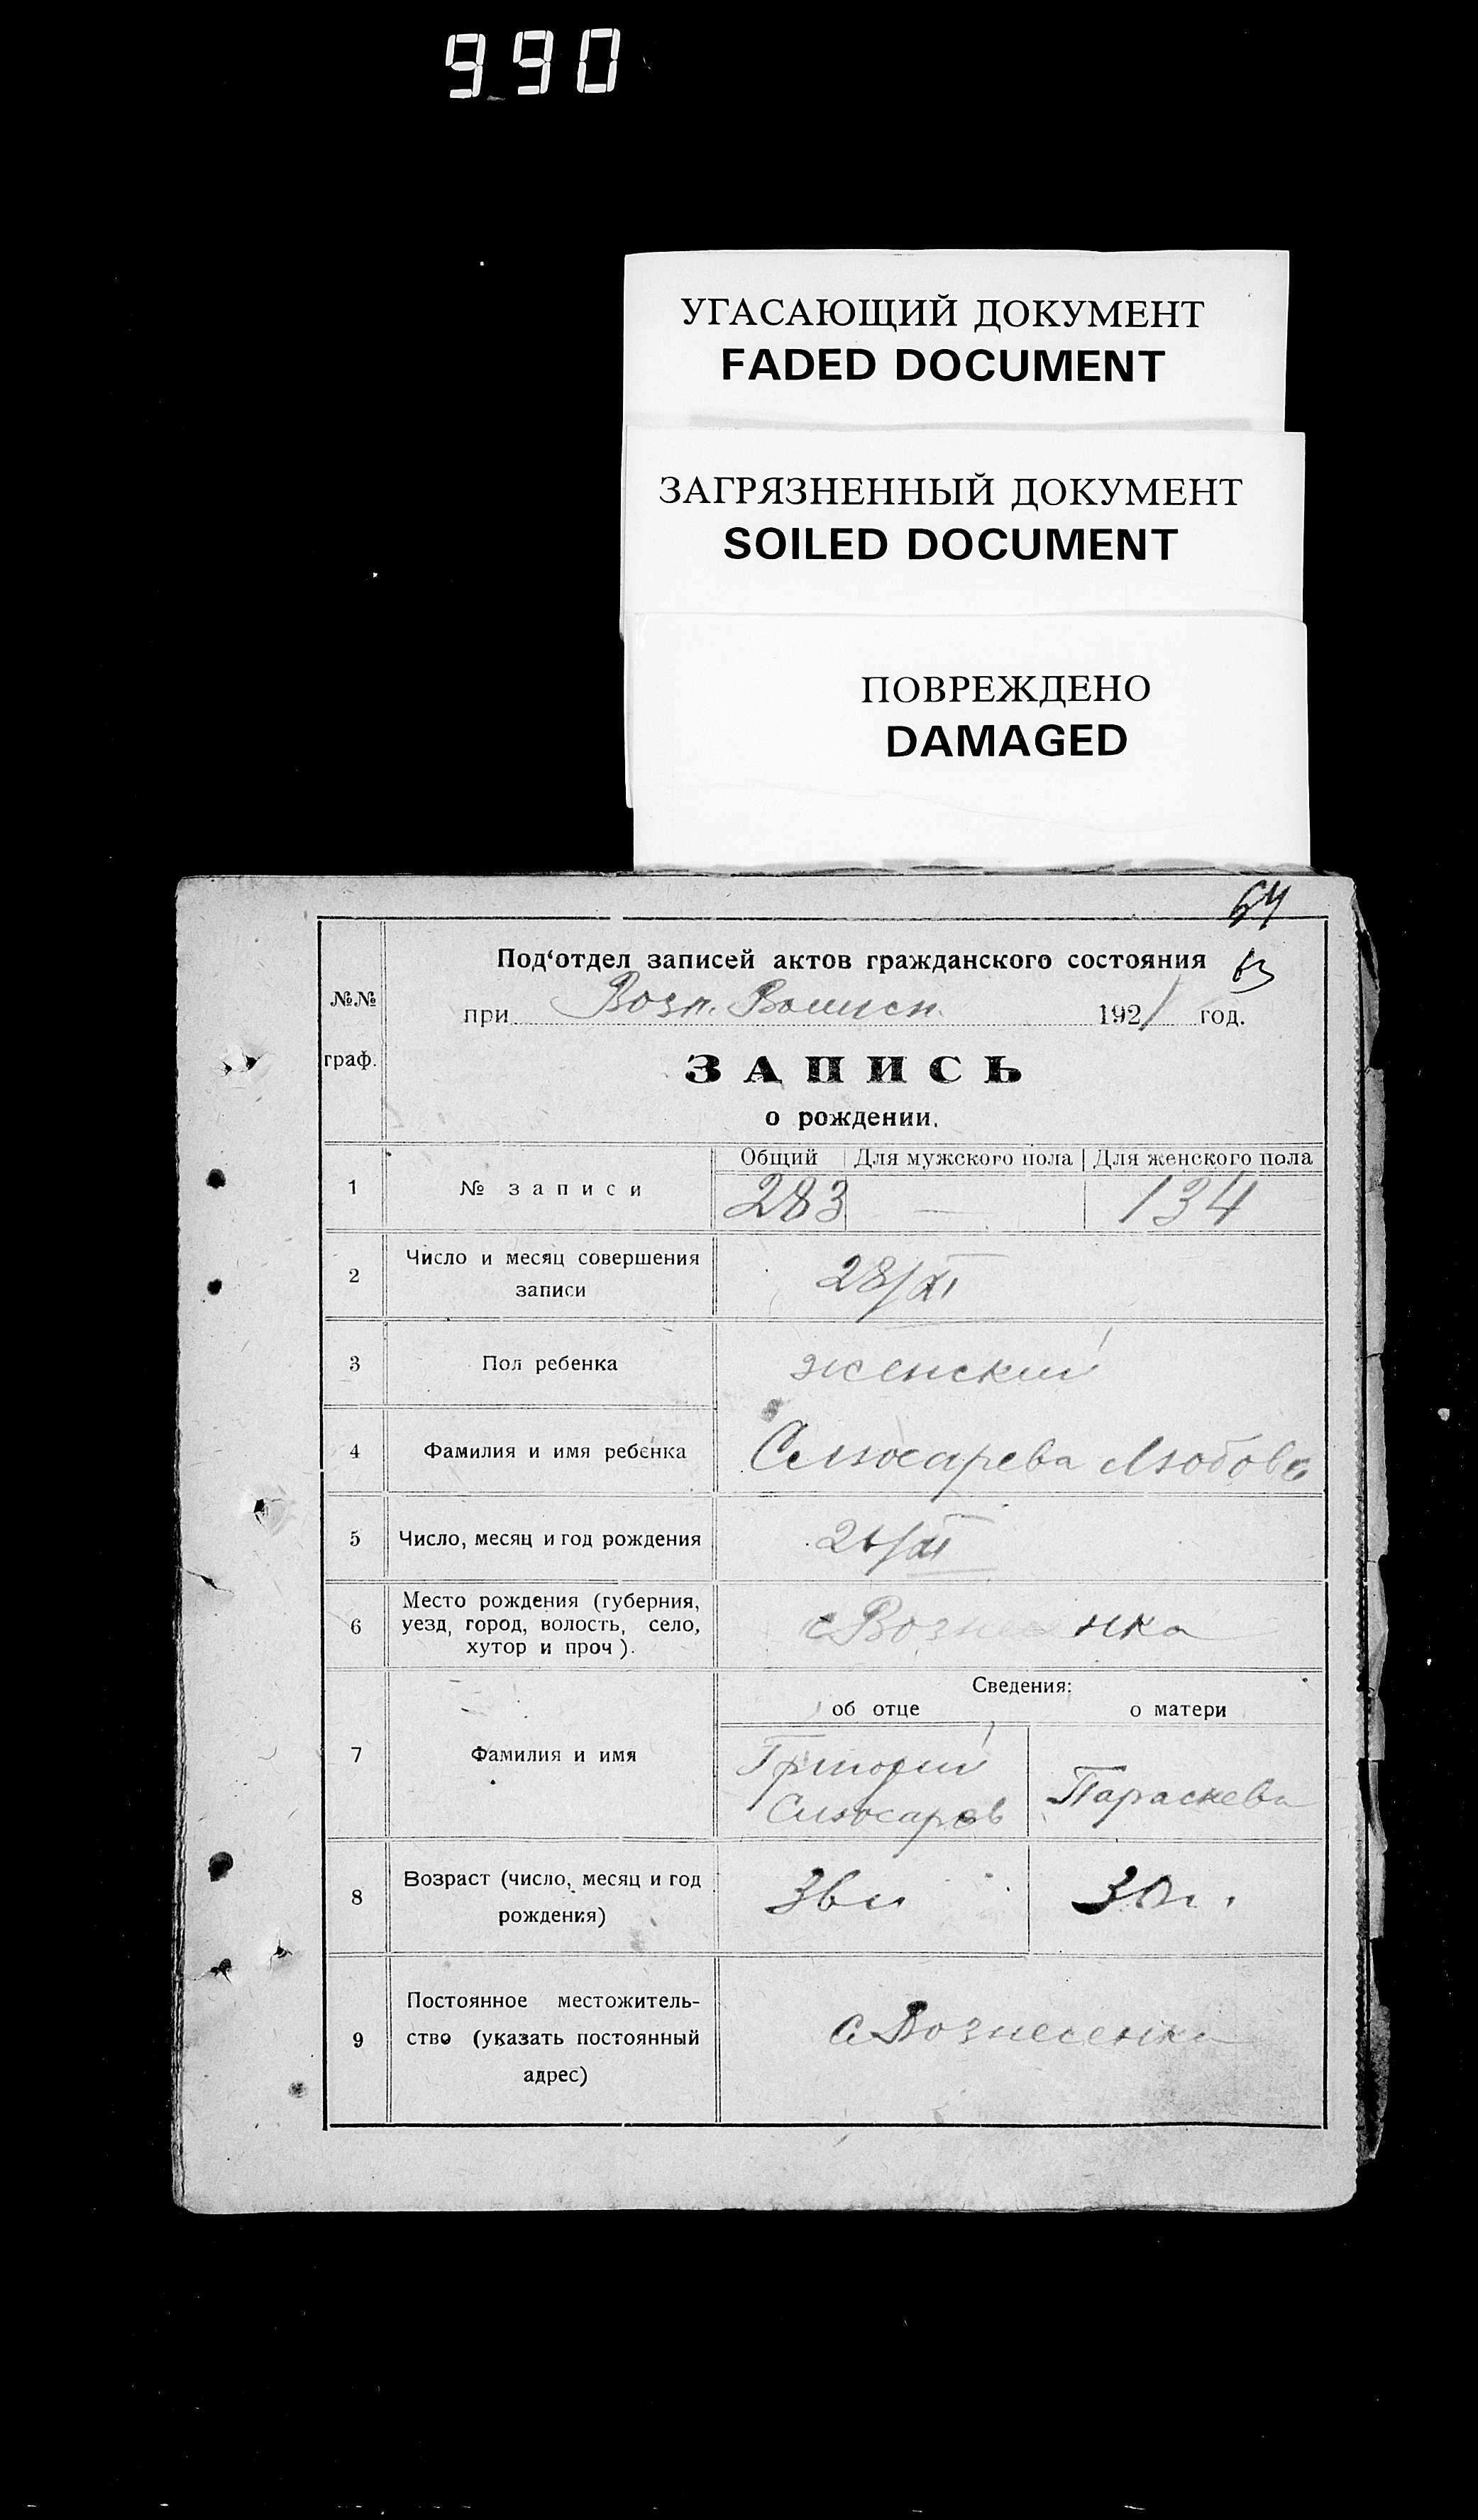 990
УГАСАЮЩИЙ ДОКУМЕНТ
FADED DOCUMENT
ЗАГРЯЗНЕННЫЙ ДОКУМЕНТ
SOILED DOCUMENT
ПОВРЕЖДЕНО
DAMAGED
64
63
№№
граф.
Под‘отдел записей актов гражданского состояния
при Возн. 1921 год.
ЗАПИСЬ
о рождении.
Общий Для мужского пола Для женского пола
1 № записи 283 — 134
2 Число и месяц совершения
записи 28/XI
3 Пол ребенка женский
4 Фамилия и имя ребенка Слюсарева Любовь
5 Число, месяц и год рождения 26/XI
6 Место рождения (губерния,
уезд, город, волость, село,
хутор и проч). с Вознесенка
Сведения:
об отце о матери
7 Фамилия и имя Григорий
Слюсарев Параскева
8 Возраст (число, месяц и год
рождения) 36 л 30 л.
9 Постоянное местожитель-
ство (указать постоянный
адрес) С. Вознесенка